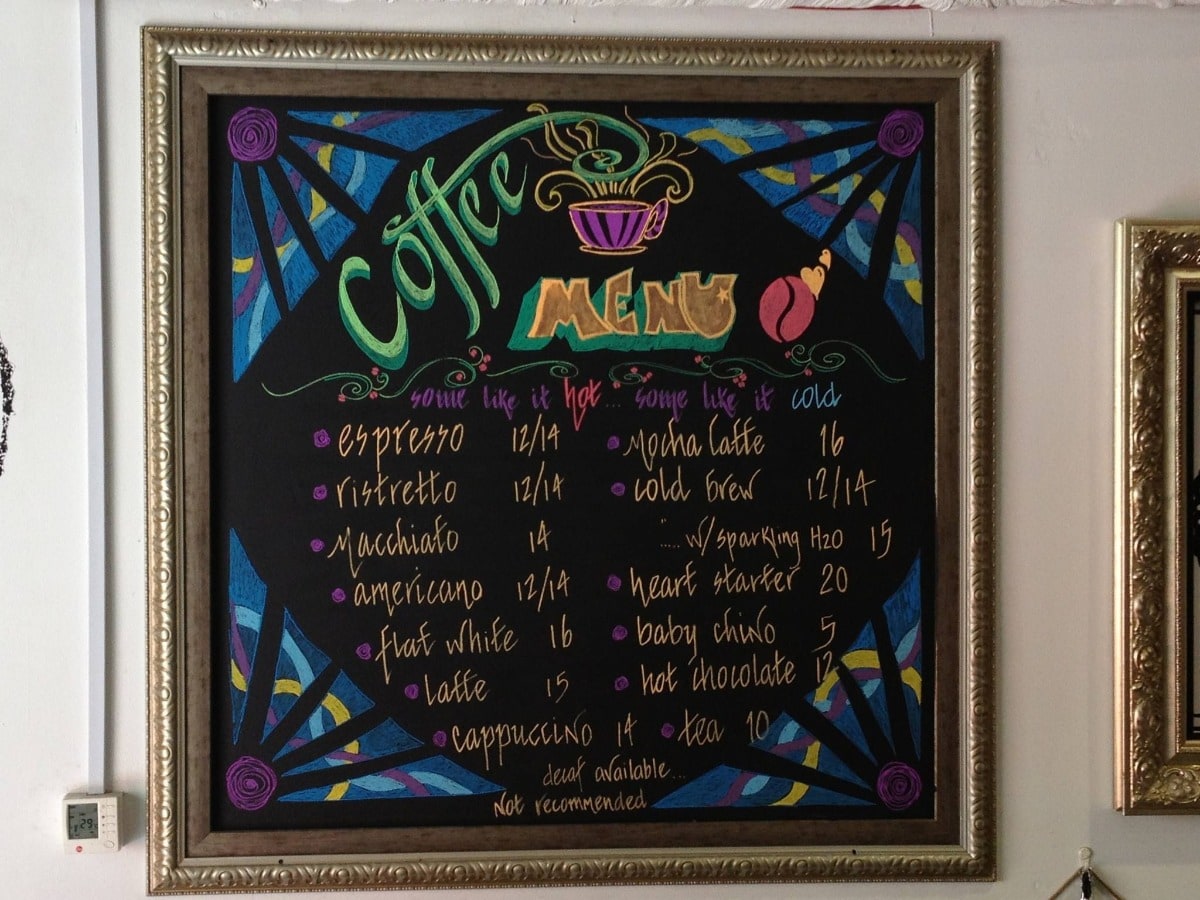 Coffee
MENU
some like it hot... some like it cold
espresso 12/14
ristretto 12/14
Macchiato 14
americano 12/14
flat white 16
latte 15
cappuccino 14
Mocha Latte 16
cold brew 12/14
".... w/ sparkling H2O 15
heart starter 20
baby chino 5
hot chocolate 12
tea 10
decaf available...
Not recommended
29